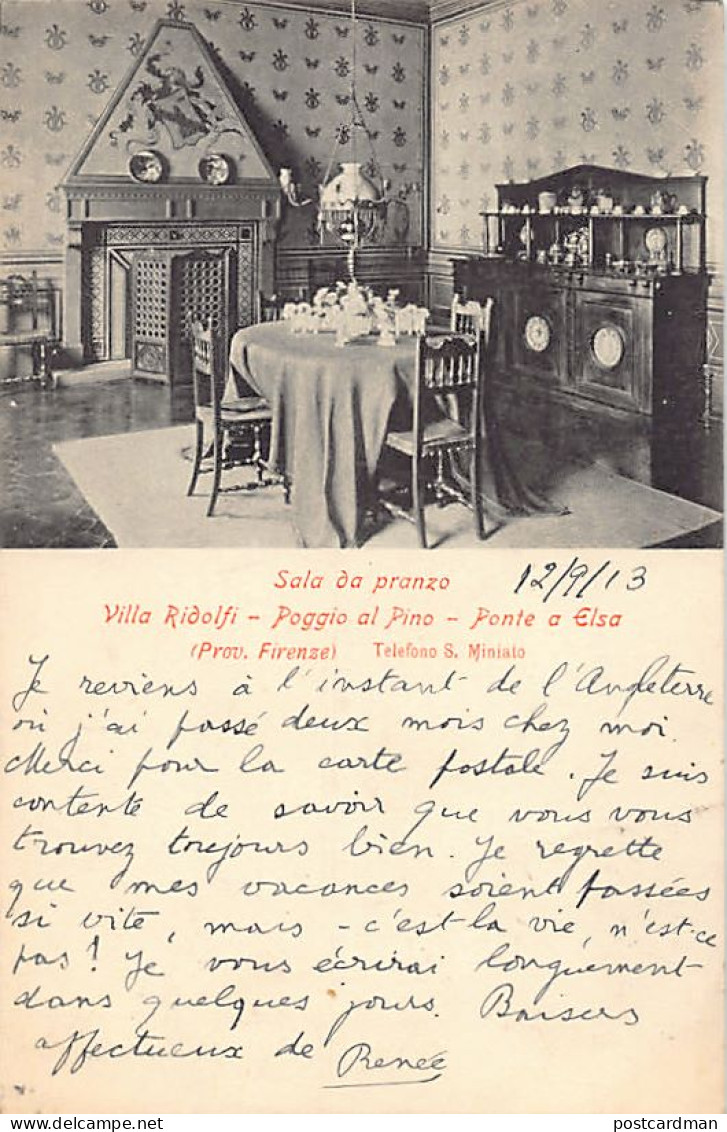 Sala da pranzo 12/9/13
Villa Ridolfi - Poggio al Pino - Ponte a Elsa
(Prov. Firenze) Telefono S. Miniato
Je reviens à l'instant de l'Angleterre
où j'ai passé deux mois chez moi.
Merci pour la carte postale. Je suis
contente de savoir que vous vous
trouvez toujours bien. Je regrette
que mes vacances soient passées
si vite, mais - c'est la vie, n'est-ce
pas! Je vous écrirai longuement
dans quelques jours. Baisers
affectueux de Renée
postcardman